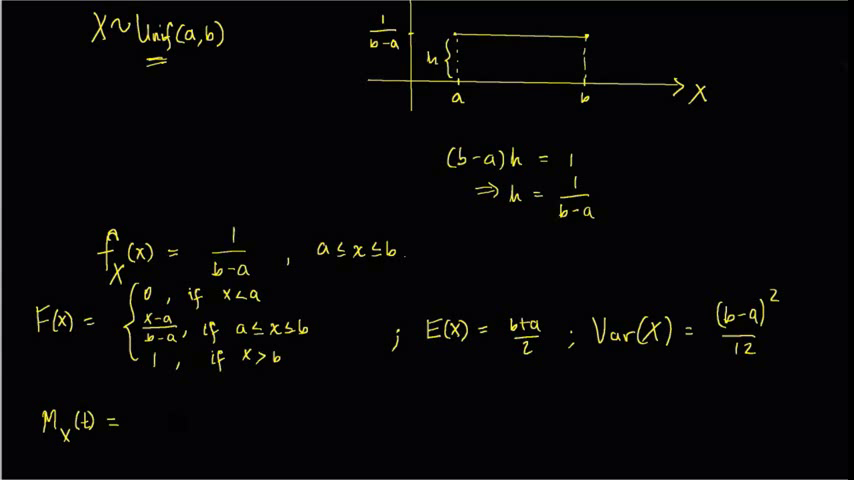 X ~ Unif(a,b)
1/(b-a)
h {
a b X
(b-a)h = 1
⇒ h = 1/(b-a)
f_X(x) = 1/(b-a) , a ≤ x ≤ b.
F(x) = { 0 , if x < a
(x-a)/(b-a) , if a ≤ x ≤ b
1 , if x > b
; E(X) = (b+a)/2 ; Var(X) = (b-a)^2/12
M_X(t) =